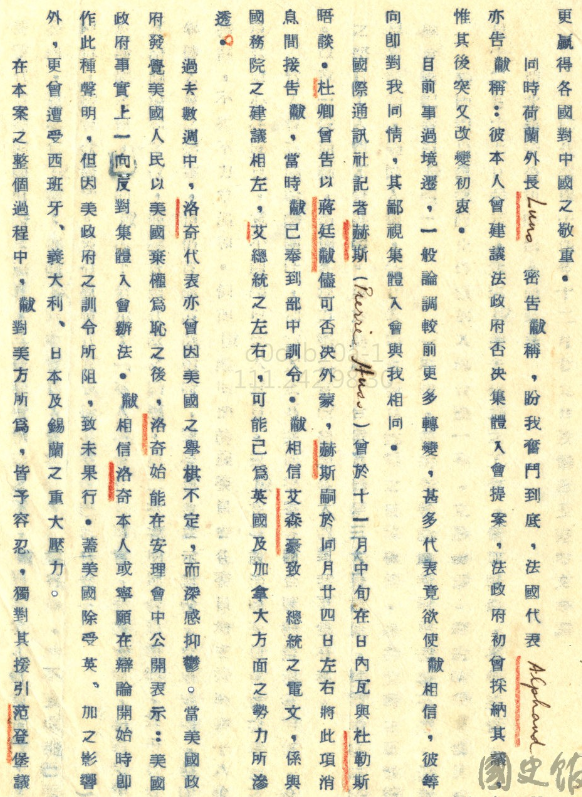 更贏得各國對中國之敬重。
同時荷蘭外長 Luns 密告黻稱，盼我奮鬥到底，法國代表 Alphand
亦告黻稱：彼本人曾建議法政府否決集體入會提案，法政府初曾採納其議，
惟其後突又改變初衷。
目前事過境遷，一般論調較前更多轉變，甚多代表竟欲使黻相信，彼等
向即對我同情，其鄙視集體入會與我相同。
國際通訊社記者赫斯（Pierre Huss）曾於十一月中旬在日內瓦與杜勒斯
晤談。杜卿曾告以蔣廷黻儘可否決外蒙，赫斯嗣於同月廿四日左右將此項消
息間接告黻，當時黻己奉到部中訓令。黻相信艾森豪致　總統之電文，係與
國務院之建議相左，艾總統之左右，可能己為英國及加拿大方面之勢力所滲
透。
過去數週中，洛奇代表亦曾因美國之舉棋不定，而深感抑鬱。當美國政
府發覺美國人民以美國棄權為恥之後，洛奇始能在安理會中公開表示：美國
政府事實上一向反對集體入會辦法。黻相信洛奇本人或寧願在辯論開始時即
作此種聲明，但因美政府之訓令所阻，致未果行。蓋美國除受英、加之影響
外，更曾遭受西班牙、義大利、日本及錫蘭之重大壓力。
在本案之整個過程中，黻對美方所為，皆予容忍，獨對其援引范登堡議
國史館